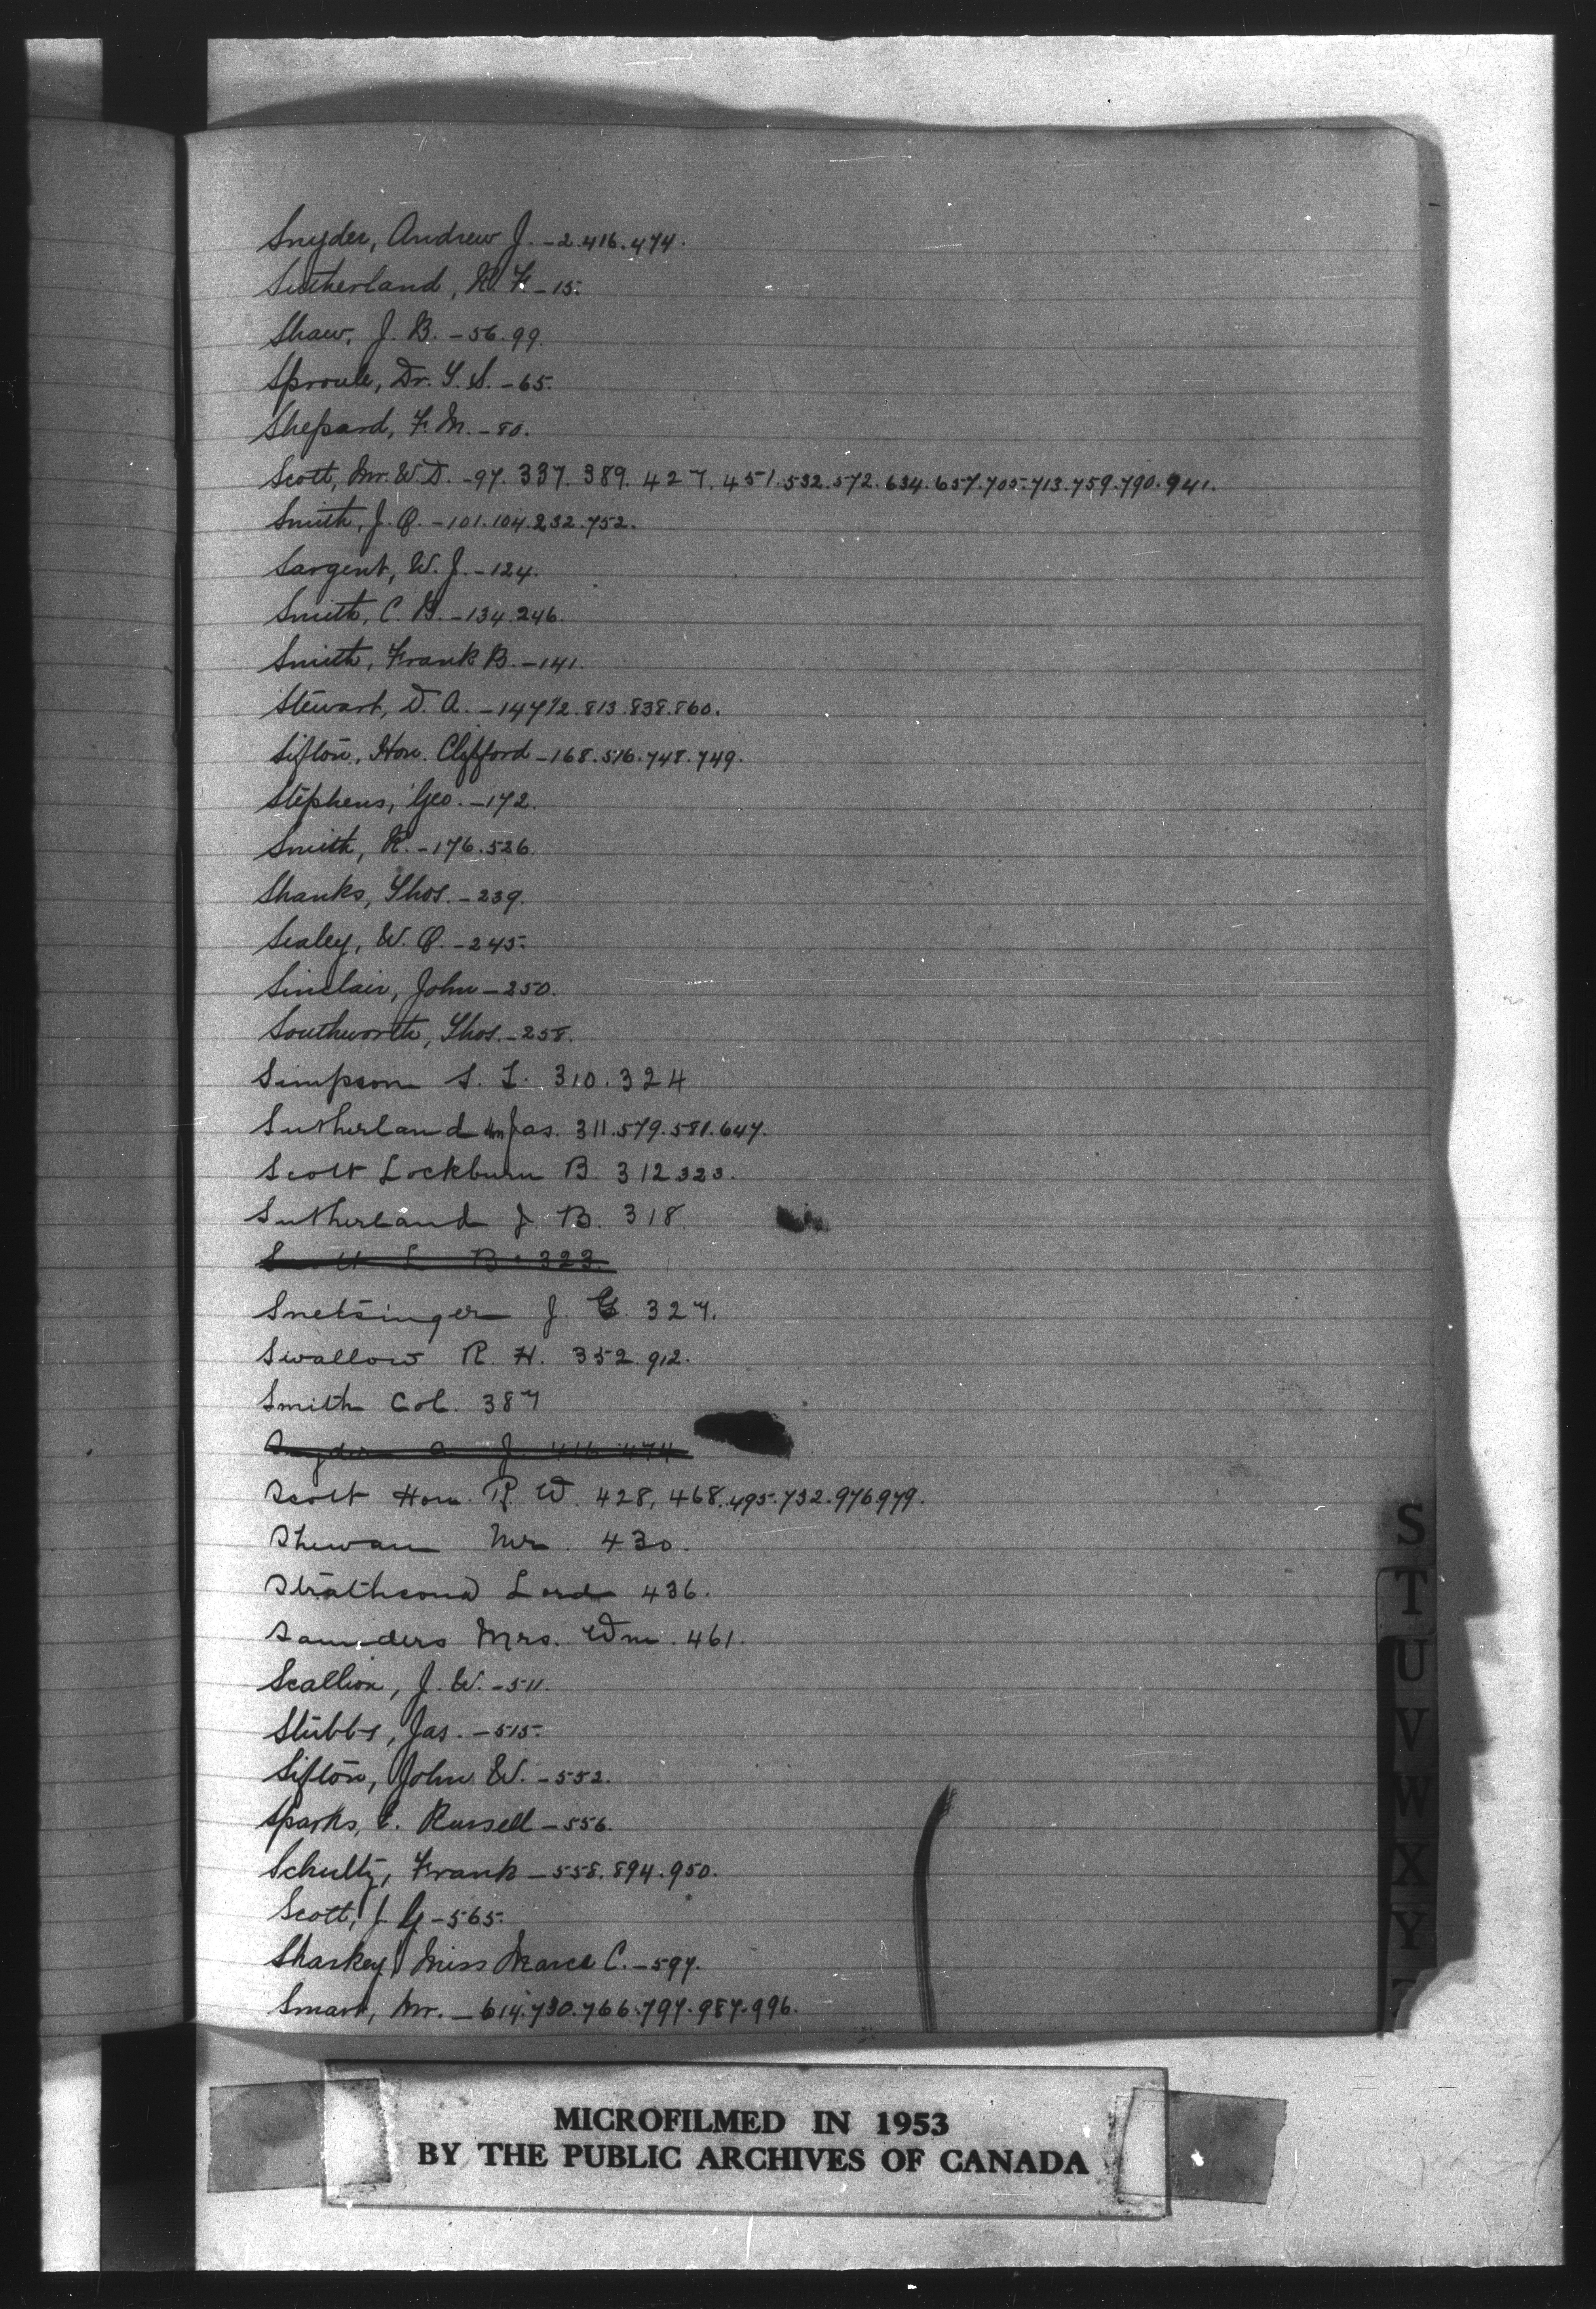 Snyder, Andrew J. - 2.416.474.
Sutherland, R. F. - 15.
Shaw, J. B. - 56.99.
Sproule, Dr. T. S. - 65.
Shepard, F. M. - 80.
Scott, Mr. W. D. - 97. 337. 389. 427. 451. 532. 572. 634. 657. 705. 713. 759. 790. 941.
Smith, J. O. - 101.104.232.752.
Sargent, W. J. - 124.
Smith, C. B. - 134.246.
Smith, Frank B. - 141.
Stewart, D. A. - 147½.813.838.860.
Sifton, Hon. Clifford - 168.516.748.749.
Stephens, Geo. - 172.
Smith, R. - 176.526.
Shanks, Thos. - 239.
Sealey, W. O. - 245.
Sinclair, John - 250.
Southworth, Thos. - 258.
Simpson S. L. 310.324
Sutherland Hon Jas. 311.579.581.647.
Scott Lockburn B. 312 323.
Sutherland J. B. 318.
Scott L B. 323.
Snetsinger J. G. 327.
Swallow R. H. 352.912.
Smith Col. 387
Snyder A J. 416 474
Scott Hon. R. W. 428, 468.495.732.976.979.
Shewan Mr. 430.
Strathcona Lord 436.
Saunders Mrs. Wm. 461.
Scallion, J. W. - 511.
Stubbs, Jas. - 515.
Sifton, John W. - 552.
Sparks, E. Russell - 556.
Schultz, Frank - 558.894.950.
Scott, J. G - 565.
Sharkey, Miss C. - 597.
Smart, Mr. - 614.730.766.797.987.996.
S
T
U
V
W
X
Y
MICROFILMED IN 1953
BY THE PUBLIC ARCHIVES OF CANADA